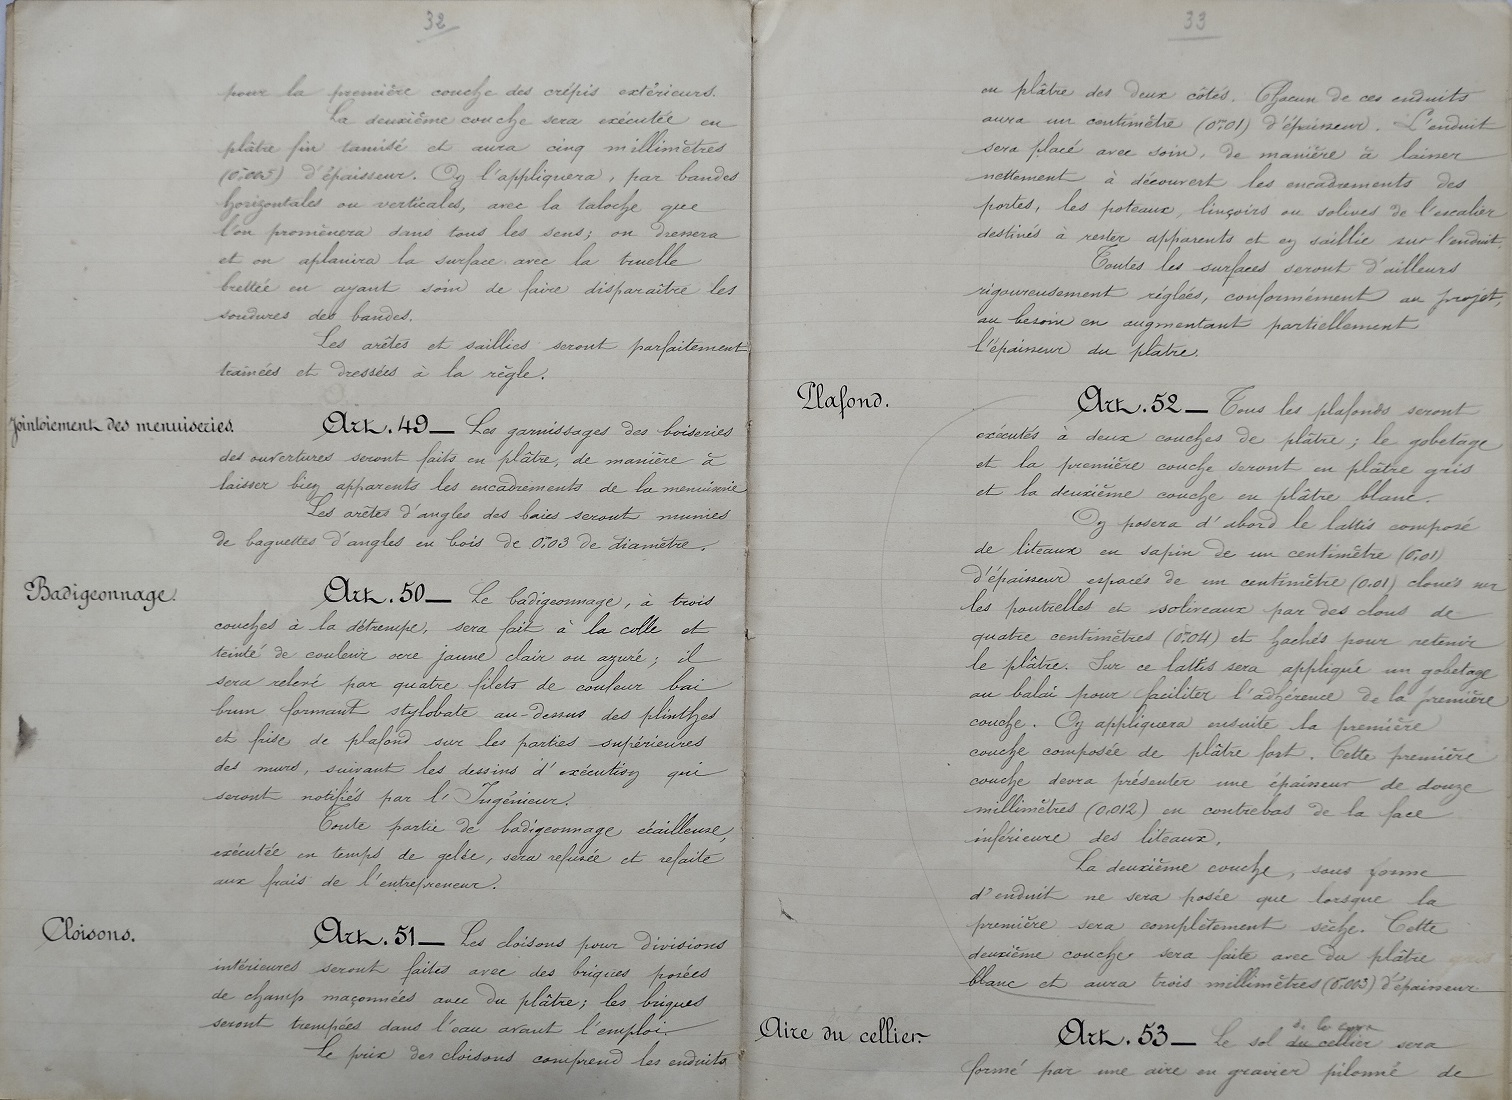 32
pour la première couche des crépis extérieurs.
La deuxième couche sera exécutée en
plâtre fin tamisé et aura cinq millimètres
(0m,005) d'épaisseur. On l'appliquera, par bandes
horizontales ou verticales, avec la taloche que
l'on promènera dans tous les sens; on dressera
et on aplanira la surface avec la truelle
brettée en ayant soin de faire disparaître les
soudures des bandes.
Les arêtes et saillies seront parfaitement
traînées et dressées à la règle.
Jointoiement des menuiseries.
Art. 49 — Les garnissages des boiseries
des ouvertures seront faits en plâtre, de manière à
laisser bien apparents les encadrements de la menuiserie
Les arêtes d'angles des baies seront munies
de baguettes d'angles en bois de 0m,03 de diamètre.
Badigeonnage.
Art. 50 — Le badigeonnage, à trois
couches à la détrempe, sera fait à la colle et
teinté de couleur ocre jaune clair ou azuré; il
sera relevé par quatre filets de couleur bai
brun formant stylobate au-dessus des plinthes
et frise de plafond sur les parties supérieures
des murs, suivant les dessins d'exécution qui
seront notifiés par l'Ingénieur.
Toute partie de badigeonnage écailleuse,
exécutée en temps de gelée, sera refusée et refaite
aux frais de l'entrepreneur.
Cloisons.
Art. 51 — Les cloisons pour divisions
intérieures seront faites avec des briques posées
de champ maçonnées avec du plâtre; les briques
seront trempées dans l'eau avant l'emploi.
Le prix des cloisons comprend les enduits
33
en plâtre des deux côtés. Chacun de ces enduits
aura un centimètre (0m,01) d'épaisseur. L'enduit
sera placé avec soin, de manière à laisser
nettement à découvert les encadrements des
portes, les poteaux, linçoirs ou solives de l'escalier
destinés à rester apparents et en saillie sur l'enduit.
Toutes les surfaces seront d'ailleurs
rigoureusement réglées, conformément au projet,
au besoin en augmentant partiellement
l'épaisseur du plâtre.
Plafond.
Art. 52 — Tous les plafonds seront
exécutés à deux couches de plâtre; le gobetage
et la première couche seront en plâtre gris
et la deuxième couche en plâtre blanc.
On posera d'abord le lattis composé
de liteaux en sapin de un centimètre (0,01)
d'épaisseur espacés de un centimètre (0.01) cloués sur
les poutrelles et soliveaux par des clous de
quatre centimètres (0m,04) et hachés pour retenir
le plâtre. Sur ce lattis sera appliqué un gobetage
au balai pour faciliter l'adhérence de la première
couche. On appliquera ensuite la première
couche composée de plâtre fort. Cette première
couche devra présenter une épaisseur de douze
millimètres (0,012) en contrebas de la face
inférieure des liteaux.
La deuxième couche, sous forme
d'enduit ne sera posée que lorsque la
première sera complètement sèche. Cette
deuxième couche sera faite avec du plâtre
blanc et aura trois millimètres (0,003) d'épaisseur
Aire du cellier.
de la cave
Art. 53 — Le sol du cellier sera
formé par une aire en gravier pilonné de